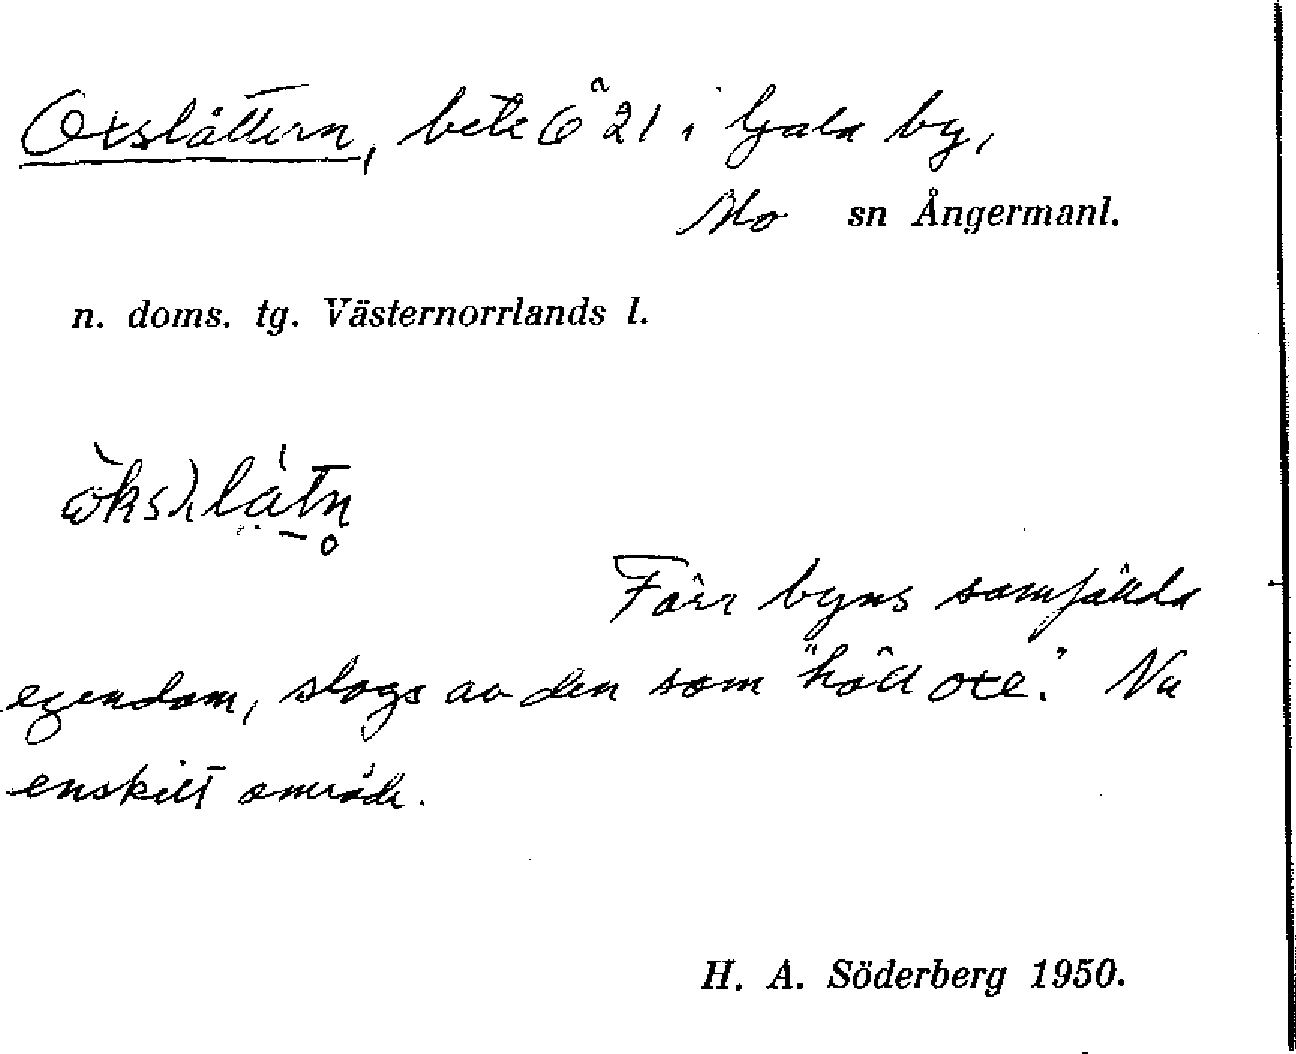 Oxslåttern, bete 6ᵃ 21 i Gala by,
Mo sn Ångermanl.
n. doms. tg. Västernorrlands l.
Förr byns samfällda
egendom, slogs av den som "höll oxe." Nu
enskilt område.
H. A. Söderberg 1950.